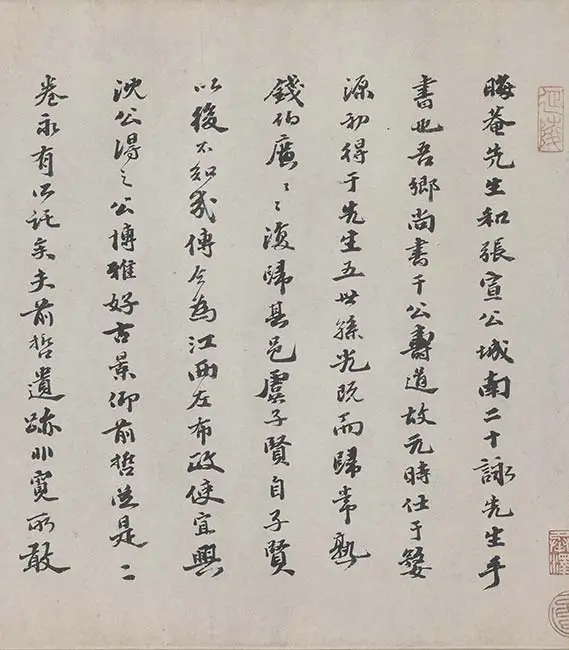 晦菴先生和張宣公城南二十詠先生手
書也吾鄉尚書干公壽道故元時仕于婺
源初得于先生五世孫光既而歸常熟
錢伯廣〻〻復歸其邑虞子賢自子賢
以後不知幾傳今為江西左布政使宜興
沈公得之公博雅好古景仰前哲於是二
卷永有所託矣夫前哲遺跡非寬所敢